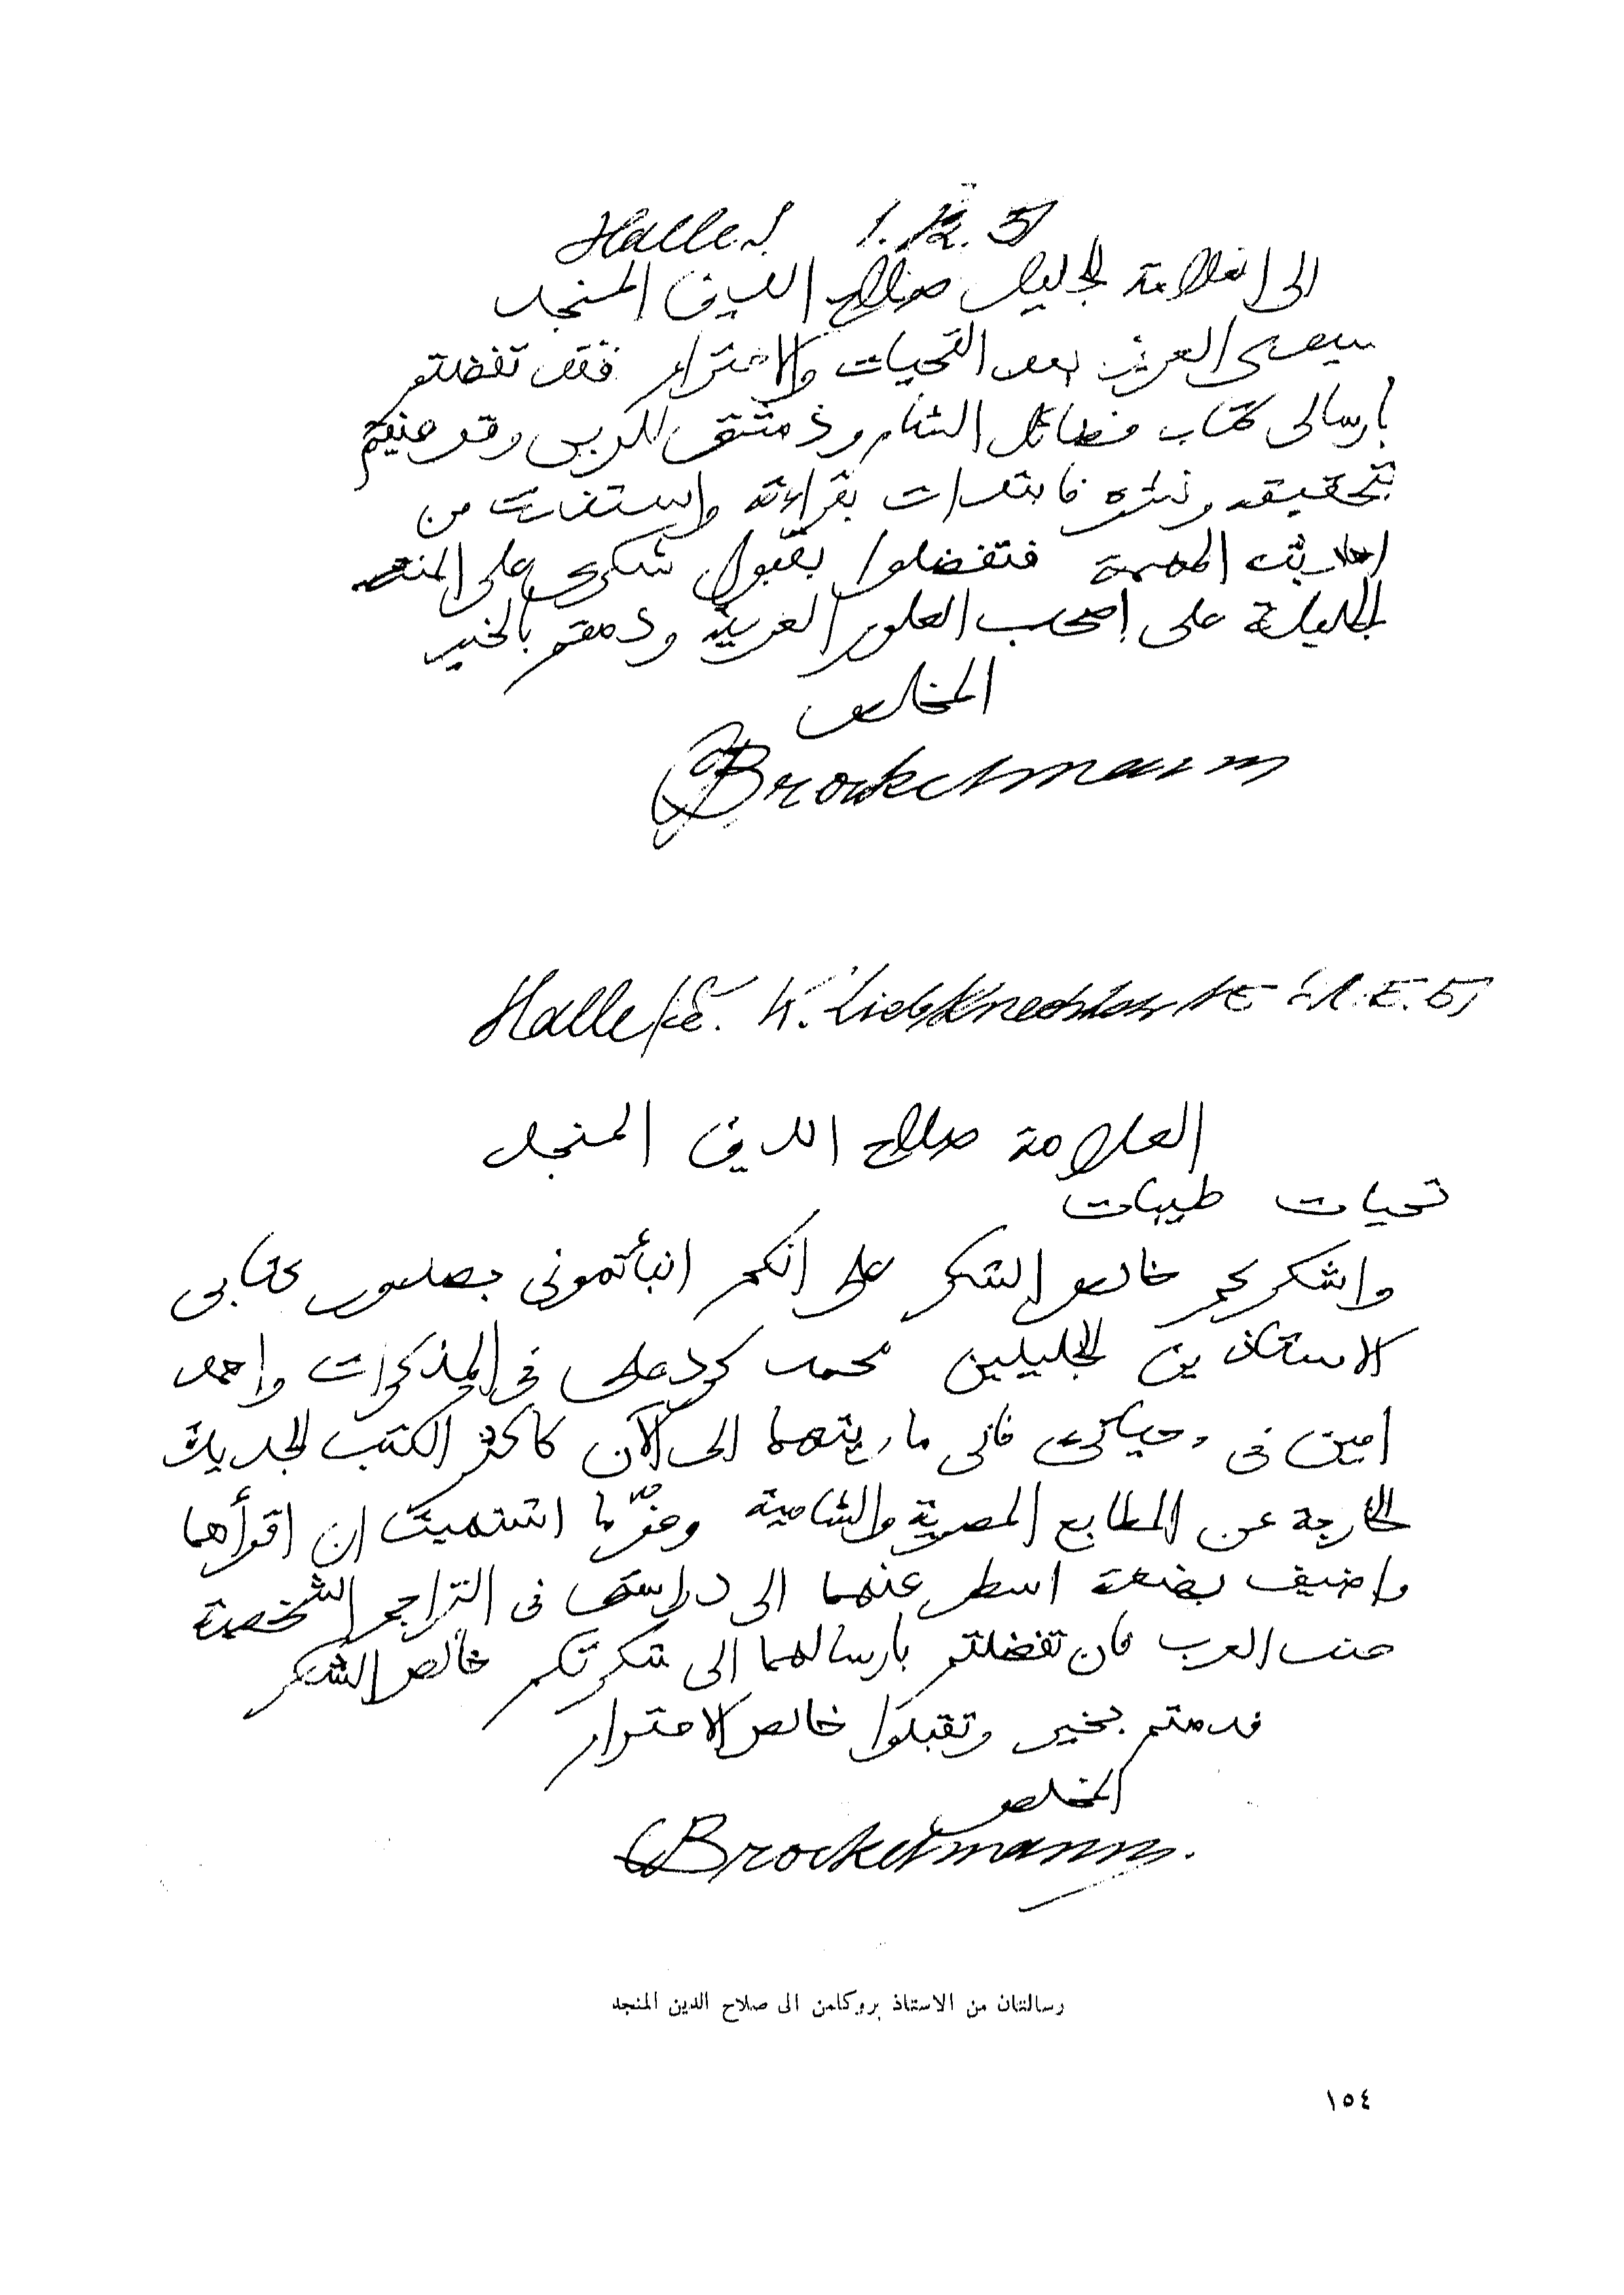 Halle 1.12.51
الى العلامة الجليل صلاح الدين المنجد
سيدى العزيز بعد التحيات والاحترام فقد تفضلتم
بارسالى كتاب فضائل الشام ودمشق للربعى وقد عنيتم
بتحقيقه ونشره فابتدات بقراءته واستفدت من
احاديثه المهمة فتفضلوا بقبول شكرى على المنة
الجليلة على اصحاب العلوم العربية ودمتم بالخير
المخلص
CBrockelmann
Halle K. Liebknechtstr 51
العلامة صلاح الدين المنجد
تحيات طيبات
واشكركم خالص الشكر على انكم انبأتمونى بصدور كتابى
الاستاذين الجليلين محمد كرد على فى المذكرات واحمد
امين فى حياتى فانى ما ريتهما الى الآن كاكثر الكتب الجديدة
الخارجة عن المطابع المصرية والشامية اشتهيت ان اقرأهما
واضيف بضعة اسطر عنهما الى دراستى فى التراجم الشخصية
عند العرب فان تفضلتم بارسالهما الى شكرتكم خالص الشكر
فدمتم بخير وتقبلوا خالص الاحترام
المخلص
CBrockelmann.
رسالتان من الاستاذ بروكلمن الى صلاح الدين المنجد
١٥٤